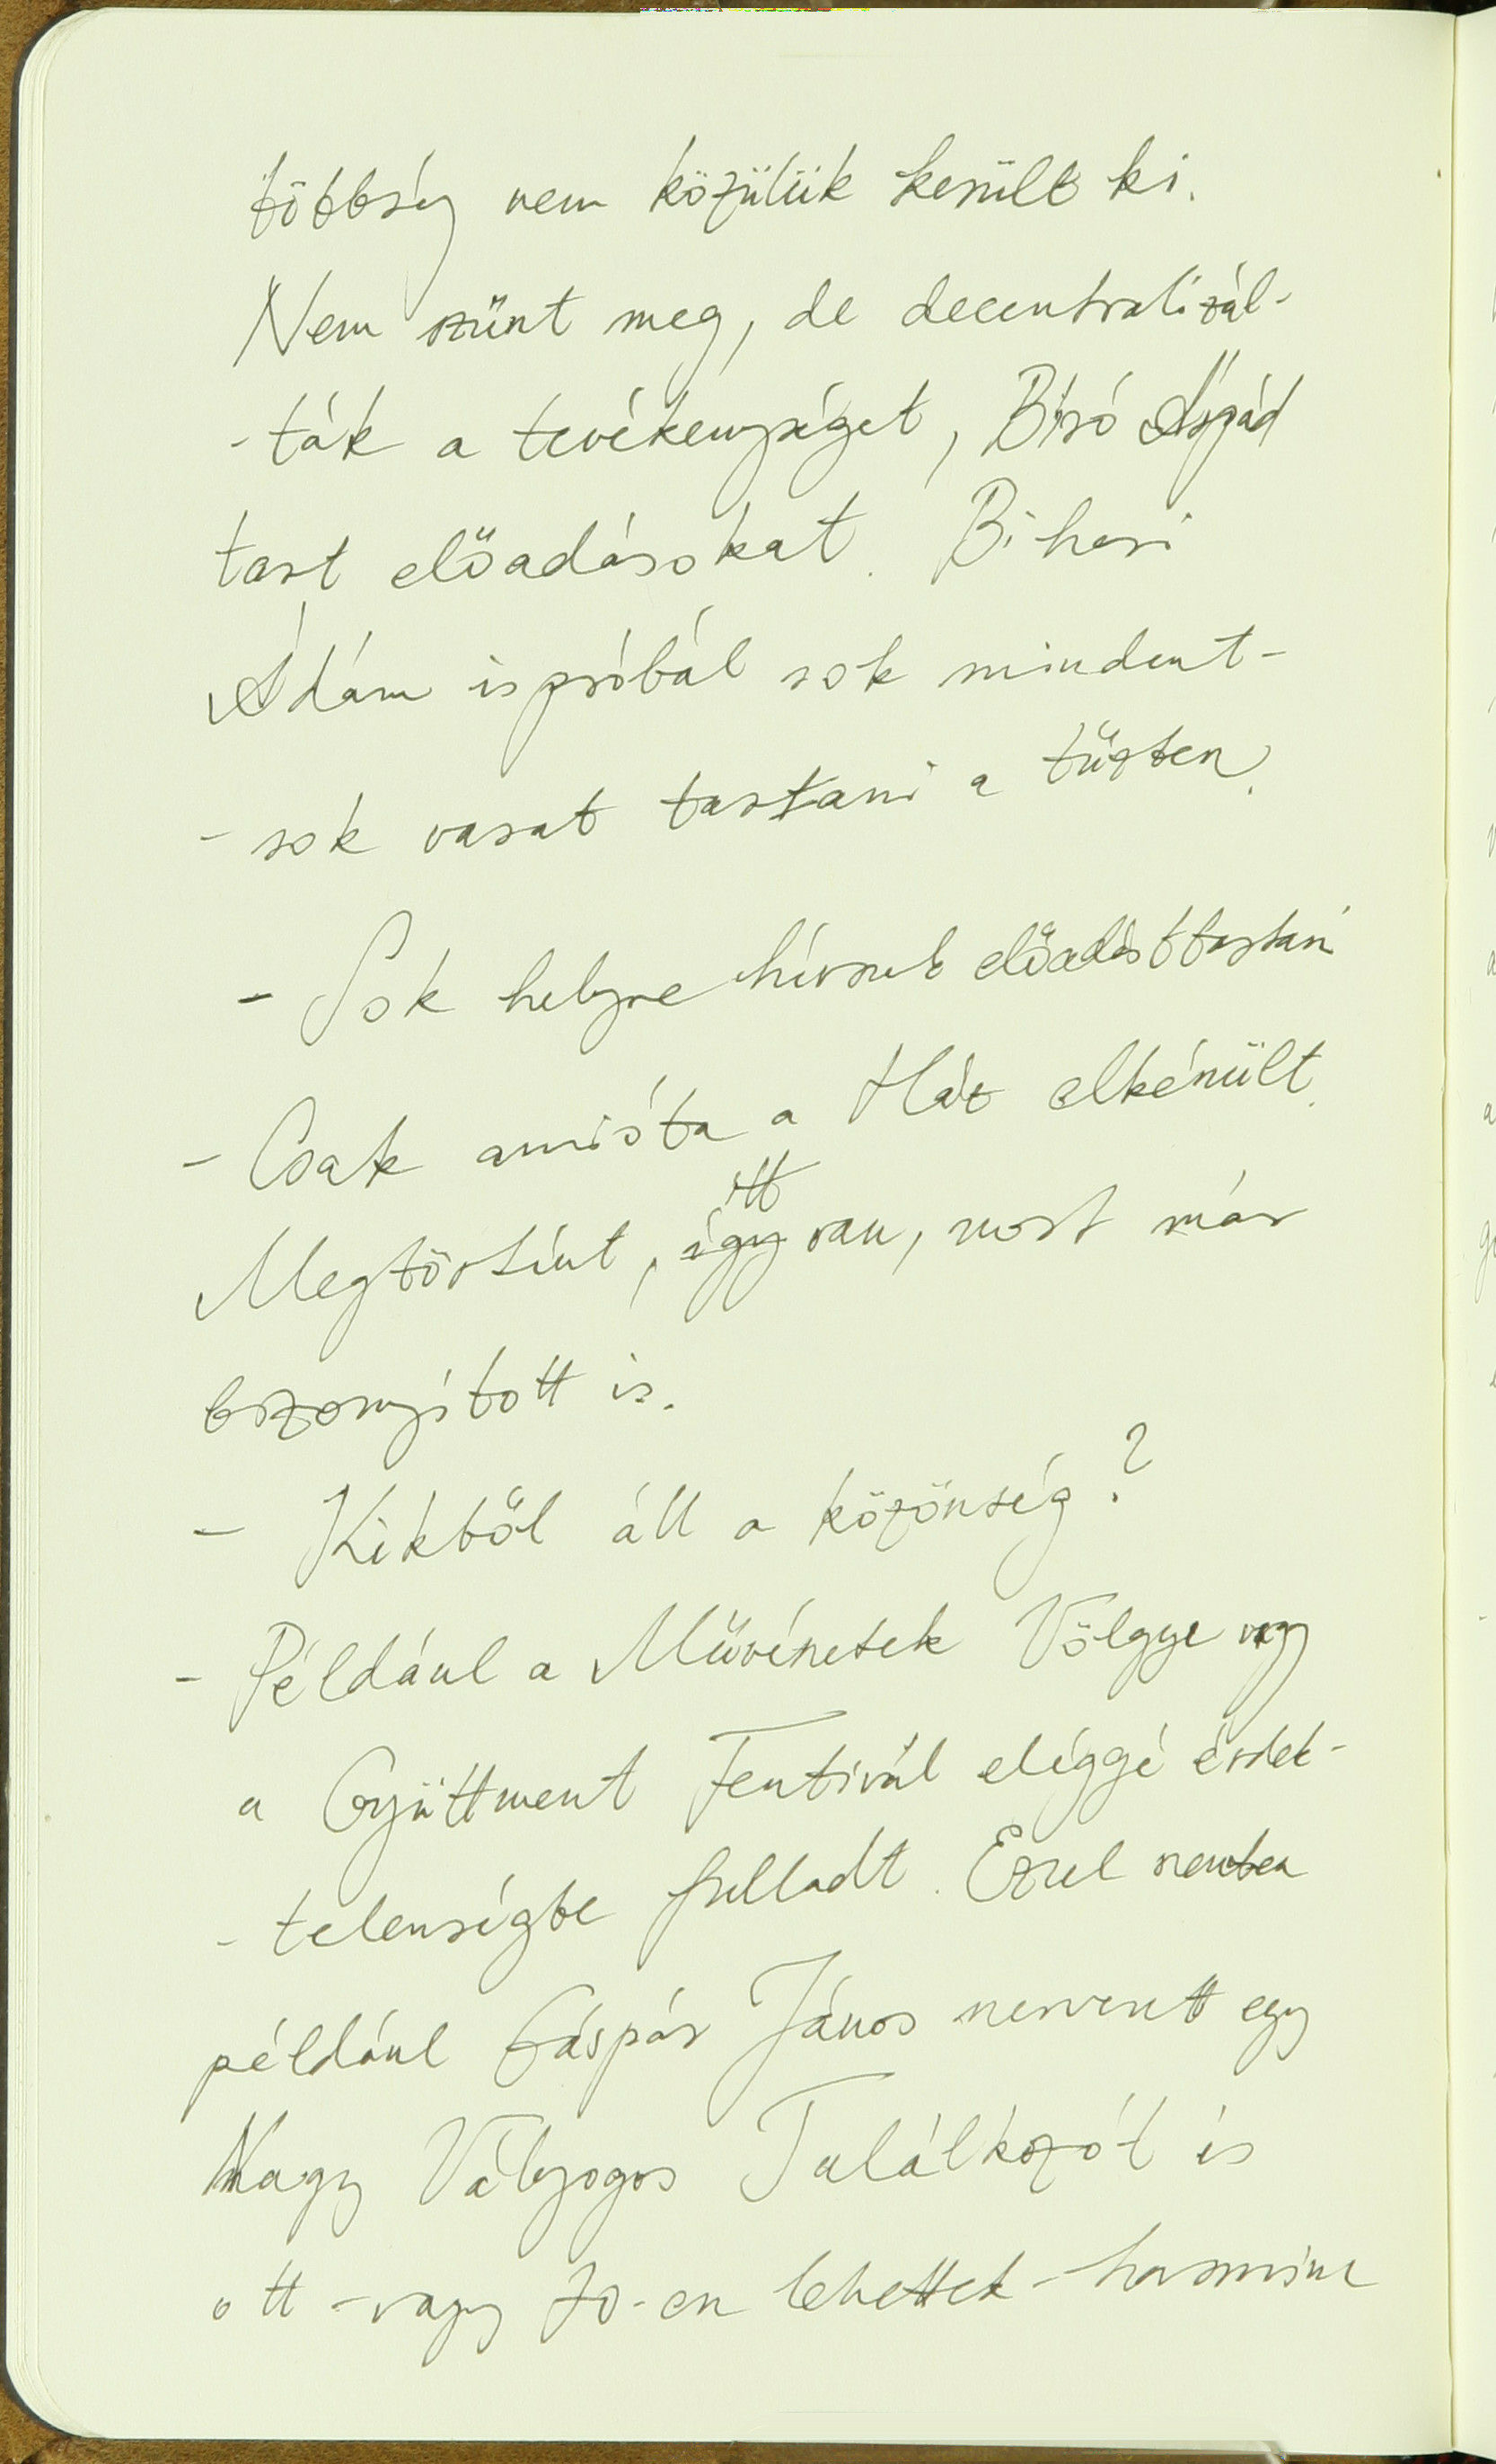 többség nem közülük került ki.
Nem szűnt meg, de decentralizál-
-ták a tevékenységet, Bíró Árpád
tart előadásokat. Bihari
Ádám is próbál sok mindent-
- sok vasat tartani a tűzben.
- Sok helyre hívnak előadást tartani
- Csak amióta a Ház elkészült.
itt
Megtörtént, így van, most már
bizonyított is.
- Kikből áll a közönség?
- Például a Művészetek Völgye vagy
a Gyüttment Fesztivál eléggé érdek-
- telenségbe fulladt. Ezzel szemben
például Gáspár János szervezett egy
Nagy Vályogos Találkozót és
ott - vagy 70-en lehettek - harminc